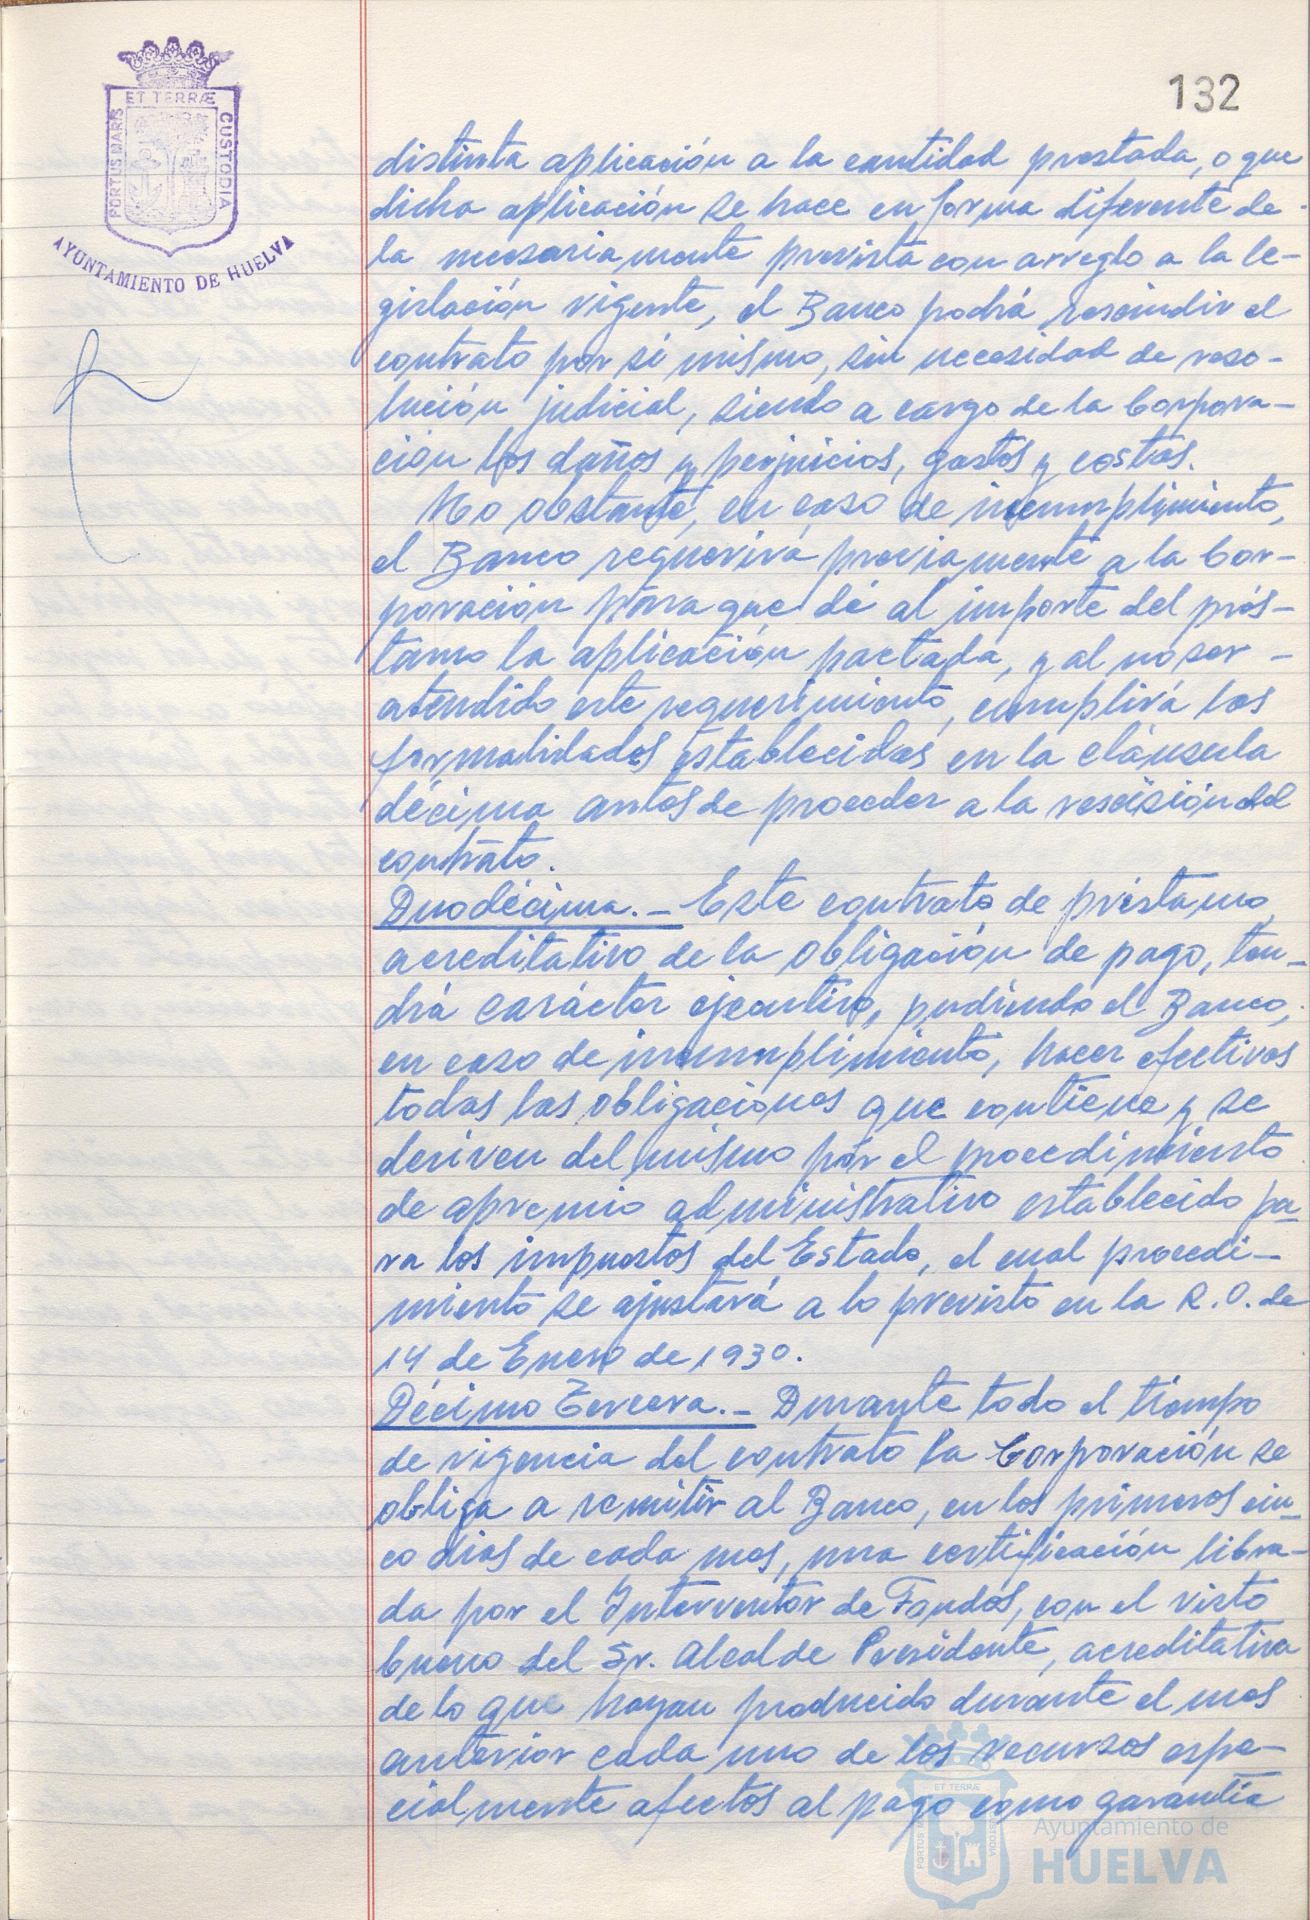 132
ET TERRÆ
PORTUS MARIS
CUSTODIA
AYUNTAMIENTO DE HUELVA
distinta aplicación a la cantidad prestada, o que
dicha aplicación se hace en forma diferente de
la necesariamente prevista con arreglo a la le-
gislación vigente, el Banco podrá rescindir el
contrato por sí mismo, sin necesidad de reso-
lución judicial, siendo a cargo de la Corpora-
ción los daños y perjuicios, gastos y costas.
No obstante, en caso de incumplimiento,
el Banco requerirá previamente a la Cor-
poración para que dé al importe del prés-
tamo la aplicación pactada, y al no ser -
atendido este requerimiento, cumplirá las
formalidades establecidas en la cláusula
décima antes de proceder a la rescisión del
contrato.
Duodécima.- Este contrato de préstamo,
acreditativo de la obligación de pago, ten-
drá carácter ejecutivo, pudiendo el Banco,
en caso de incumplimiento, hacer efectivas
todas las obligaciones que contiene y se
deriven del mismo por el procedimiento
de apremio administrativo establecido pa-
ra los impuestos del Estado, el cual procedi-
miento se ajustará a lo previsto en la R.O. de
14 de Enero de 1930.
Décimo Tercera.- Durante todo el tiempo
de vigencia del contrato la Corporación se
obliga a remitir al Banco, en los primeros cin-
co días de cada mes, una certificación libra-
da por el Interventor de Fondos, con el visto
bueno del Sr. Alcalde Presidente, acreditativa
de lo que hayan producido durante el mes
anterior cada uno de los recursos espe-
cialmente afectos al pago como garantía
ET TERRÆ
Ayuntamiento de
HUELVA